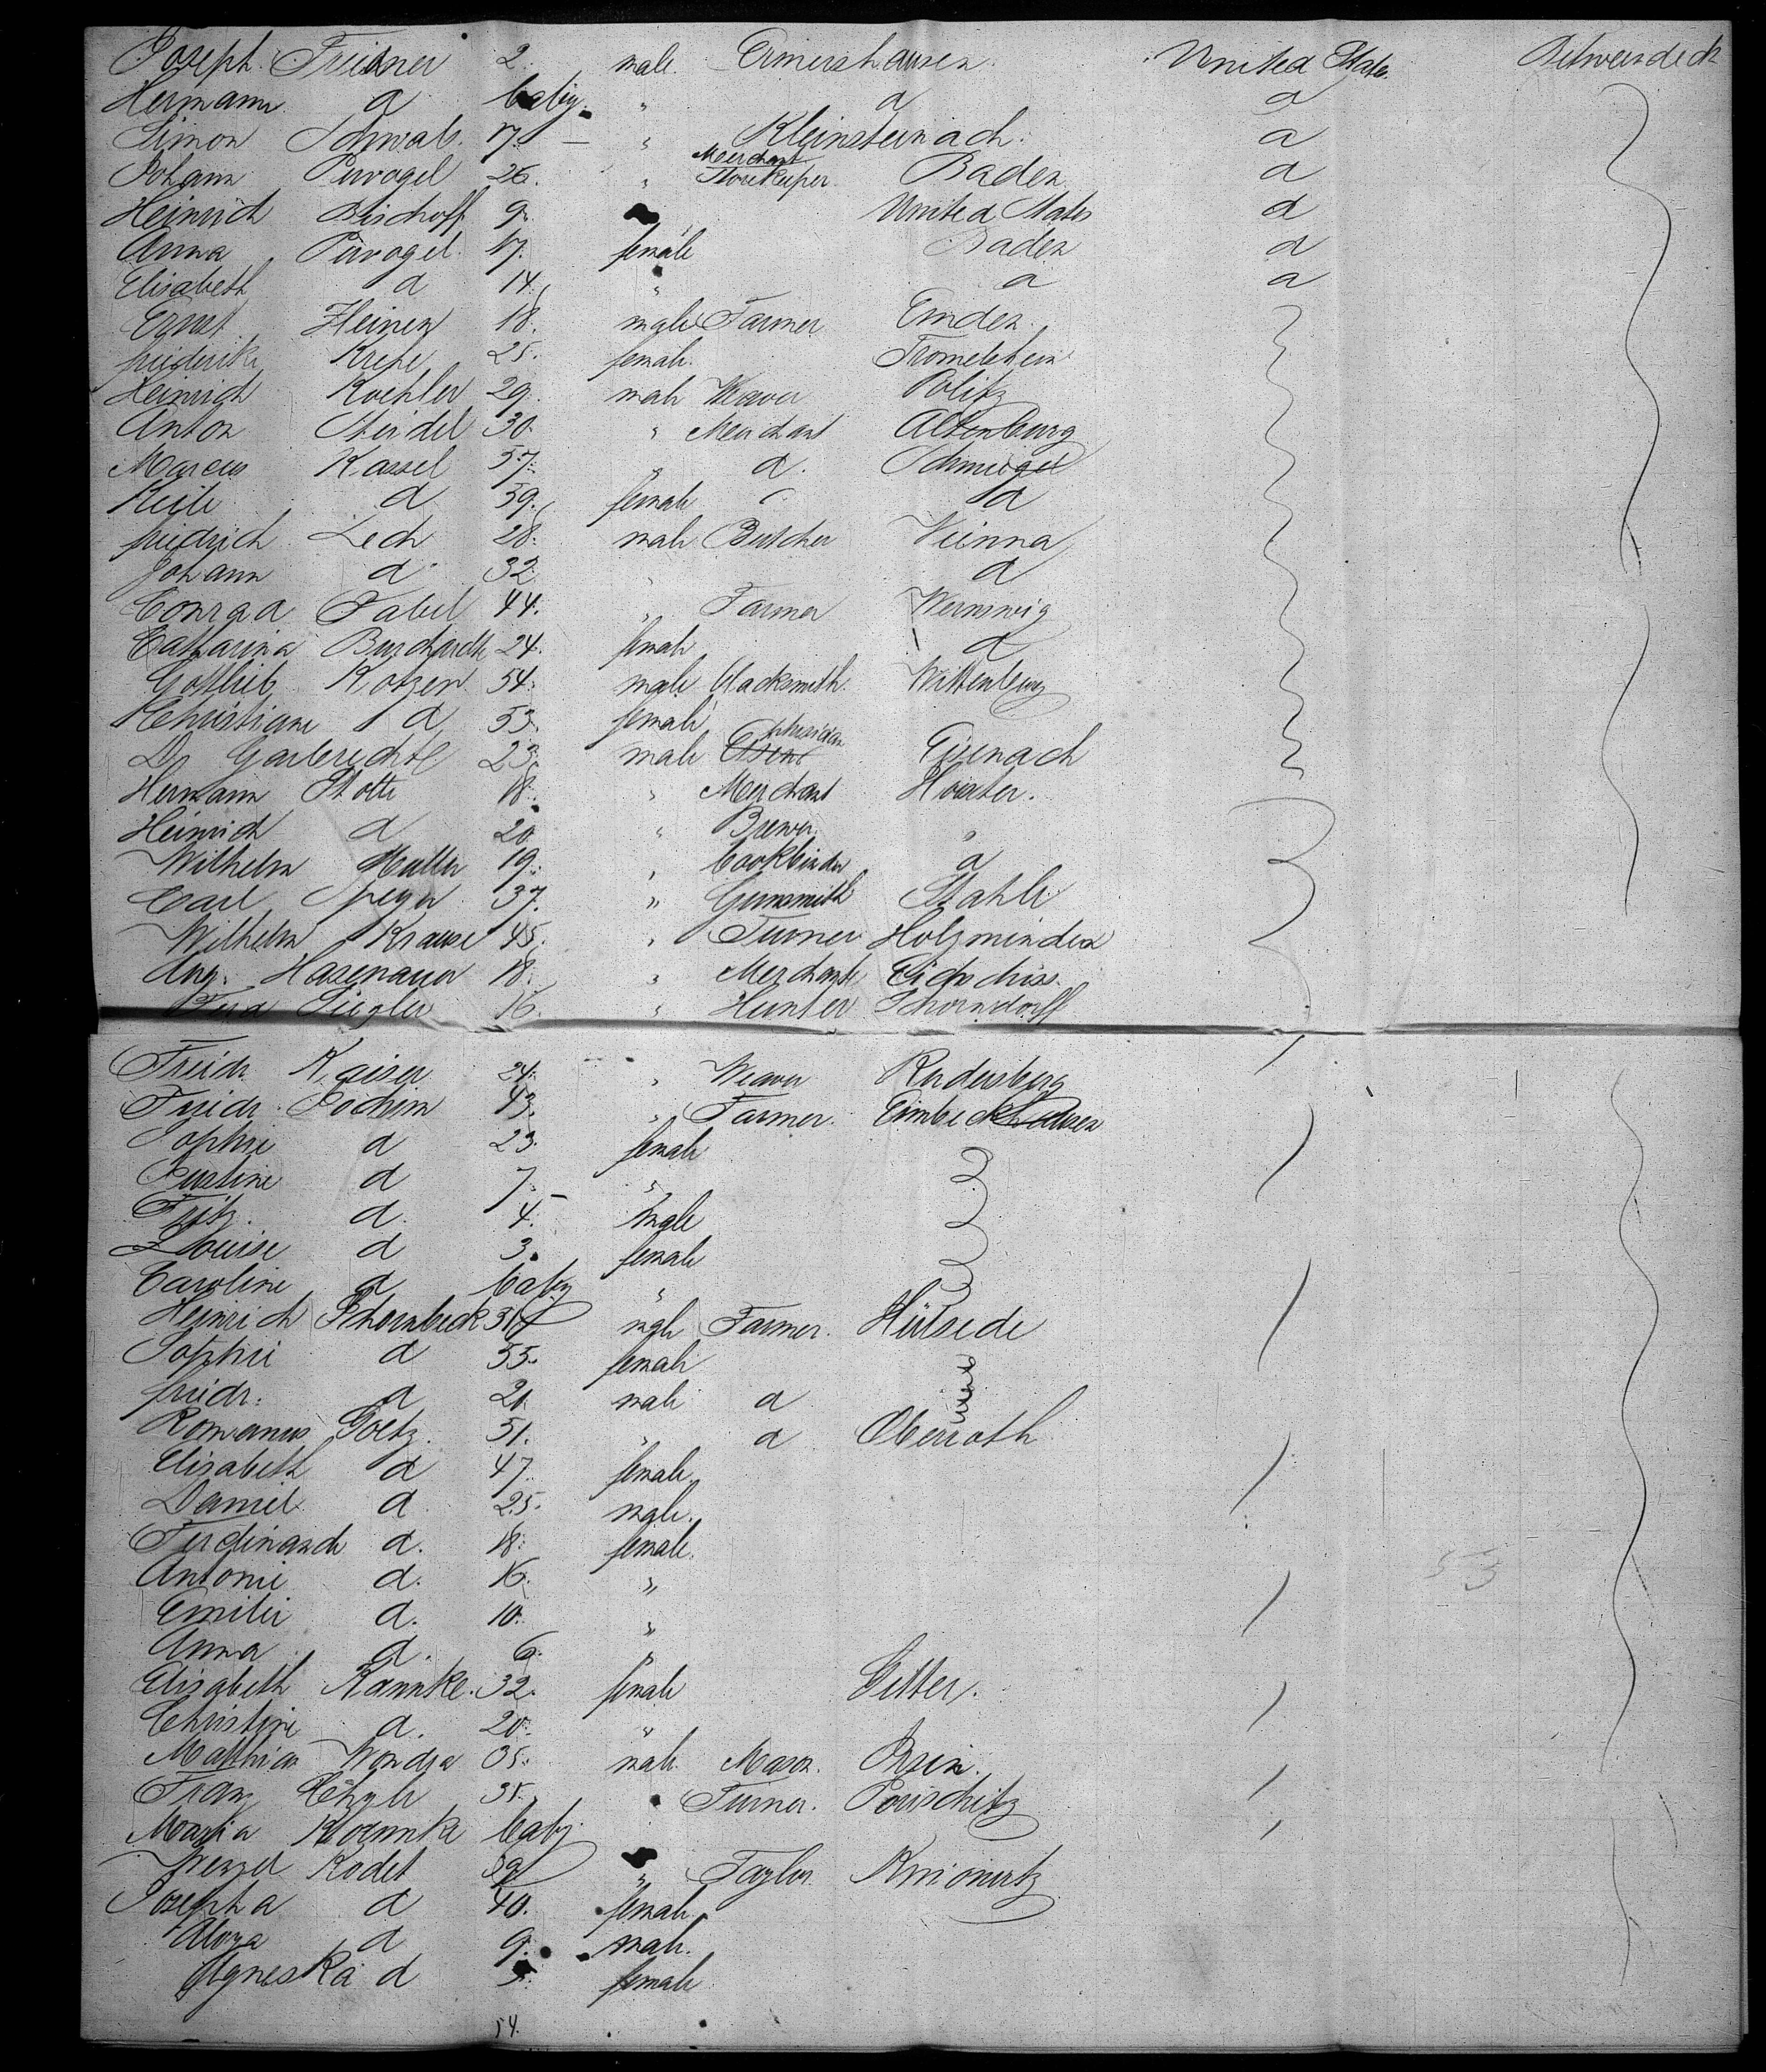 Joseph Friesner 2. male Ermershausen. United State. Betweendeck
Hermann d baby. " d d
Simon Schwab. 17. — " Kleinsteinach. d
Merchant
Johann Pervogel 26. " Storekeeper Baden d
Heinrich Bischoff 9. United States d
Anna Pervogel 17. female Baden d
Elisabeth d 14. " d d
Ernst Heinen 18. male Farmer Emden.
friederike Krefe 25. female.
Heinrich Koehler 29. male Weaver Politz
Anton Steidel 30. " Merchant Altenburg
Marcus Kassel 57. " d. Schmiegel
d 59. female d
friedrich Lech 28. male Butcher Vienna
Johann d 32. " d
Conrad Fabel 44. " Farmer Wernswig
Catharina Burchardt 24. female d
Gottlieb Kotzen 54. male blacksmith. Wittenberg
Christiane d 53. female
physician
Dr Garbrecht 23. male Eisenach
Hermann Stolte 18. " Merchant Hoexter.
Heinrich d 20 " Brewer. "
Wilhelm Muller 19. " bookbinder d
Carl Speyer 37. " Gunsmith Stahle
Wilhelm Krause 45. " Turner Holzminden
Aug. Hasenauer 18. " Merchant
Ferd Ziegler 16. " Hunter Schorndorff
Freidr Kaiser 24. " Weaver Radersberg
Freidr. Jochim 43. " Farmer. Eimbeckhausen
Sophie d 23. female
Justine d 7. "
Fritz. d. 4. male
Louise d 3. female
Caroline d baby "
Heinrich Schornbeck 31 male Farmer. Hülsede
Sophie d 55. female
friedr. d 21 male d
Romanus Goetz. 51. " d Oberroth
Elisabeth d 47. female.
Daniel d 25. male.
Ferdinande d. 18. female.
Antonie d. 16. "
53
Emilie d. 10. "
Anna d. 6. "
Elisabeth Rannke. 32. female Gitter.
Christine d. 20. "
Matthias Wondra 35. male Mason.
Franz 35. Turner. Porischitz
Maria baby
Wenzel Kodet 39 " Taylor
Josepha d 40. female
d 9. male.
Agneska d 5. female
54.